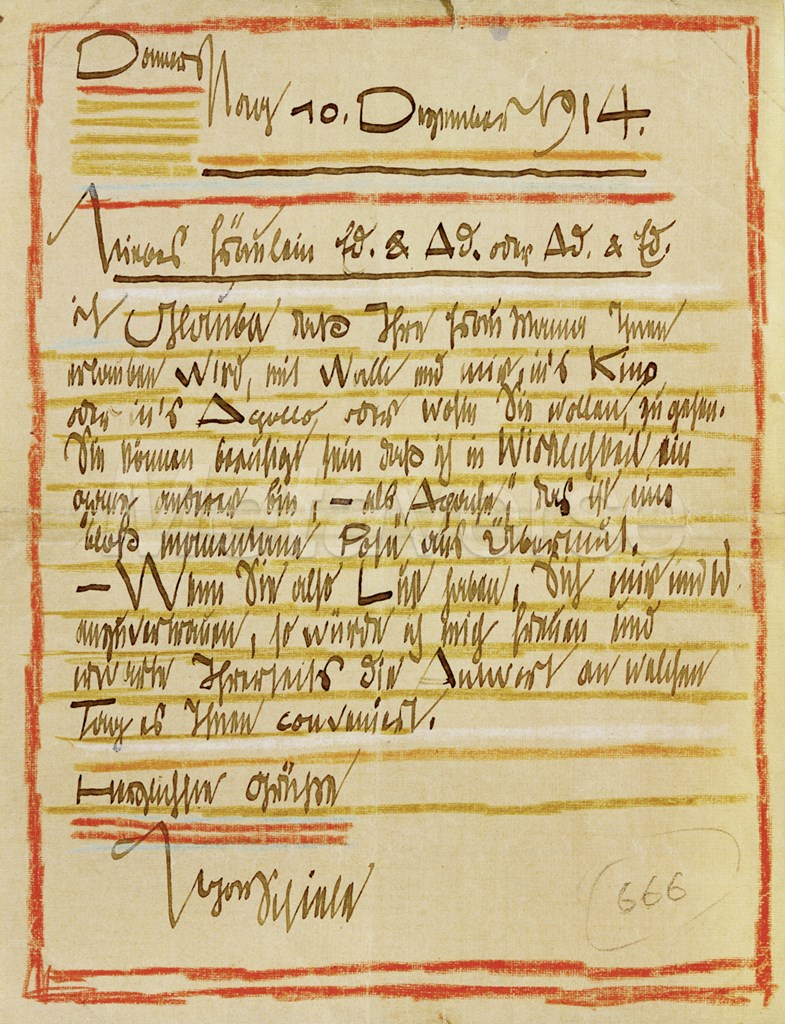 Donners
tag 10. Dezember 1914.
Liebes Fräulein Ed. & Ad. oder Ad. & Ed.
ich Glaube daß Ihre Frau Mama Ihnen
erlauben Wird, mit Walli und mir, in's Kino
oder in's Apollo, oder wohin Sie wollen, zu gehen.
Sie können beruhigt sein daß ich in Wirklichkeit ein
ganz anderer bin, – als „Apache“, das ist eine
bloß momentane Pose aus Übermut.
– Wenn Sie also Lust haben, Sich mir und W.
anzuvertrauen, so würde ich mich freuen und
erwarte Ihrerseits die Antwort an welchen
Tag es Ihnen conveniert.
Herzlichste Grüsse
Egon Schiele
666